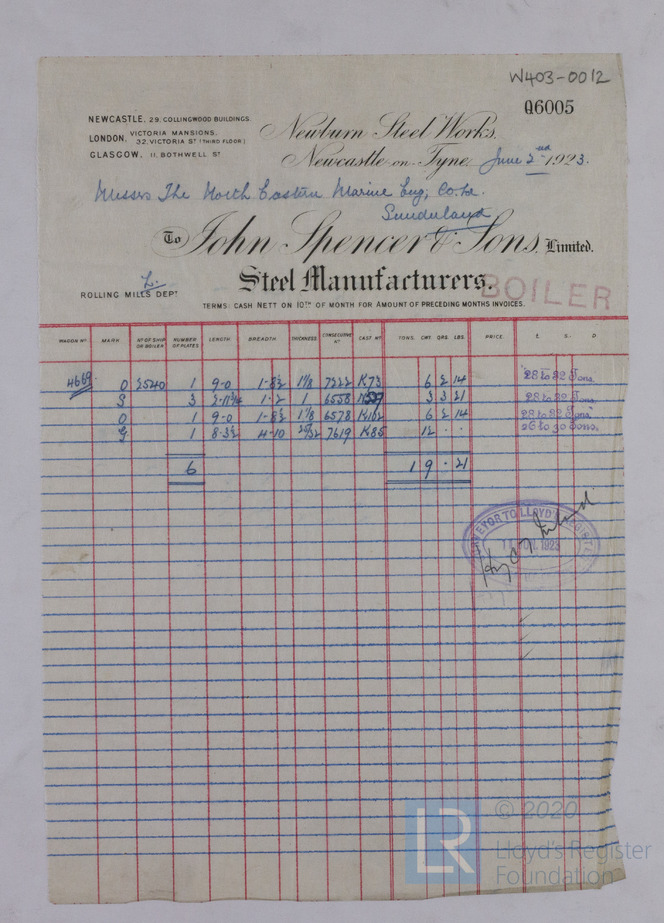 W403-0012
Q6005
NEWCASTLE, 29, COLLINGWOOD BUILDINGS.
LONDON, VICTORIA MANSIONS, 32, VICTORIA ST (THIRD FLOOR)
GLASGOW, 11, BOTHWELL ST
Newburn Steel Works,
Newcastle-on-Tyne, June 2nd 1923.
Messrs The North Eastern Marine Eng; Co. Ld.
Sunderland
To John Spencer & Sons, Limited.
Steel Manufacturers.
L.
ROLLING MILLS DEPT
BOILER
TERMS: CASH NETT ON 10TH OF MONTH FOR AMOUNT OF PRECEDING MONTHS INVOICES.
WAGON No. MARK No OF SHIP OR BOILER NUMBER OF PLATES LENGTH BREADTH THICKNESS CONSECUTIVE No CAST No TONS. CWT. QRS. LBS. PRICE. £. S. D
4669 O 2540 1 9-0 1-8½ 1⅛ 7222 K73 6 2 14 "28 to 32 Tons.
3 1-2 1 6558 3 3 21 28 to 32 Tons.
O 1 9-0 1-8½ 1⅛ 6578 K102 6 2 14 28 to 32 Tons"
1 8-3½ 4-10 7619 K85 12 . . 26 to 30 Tons.
6 1 9 . 21
SURVEYOR TO LLOYD'S REGISTER
1923
© 2020
LR
Lloyd's Register
Foundation